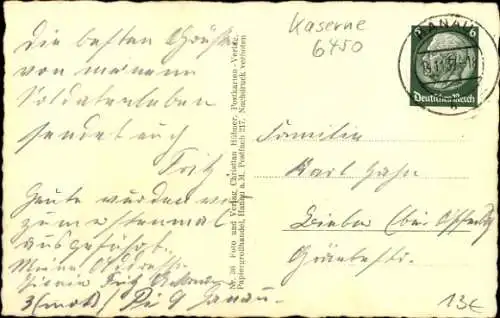 Die besten Grüße
von meinem
Soldatenleben
sendet euch
Fritz
Heute wurden wir
zum erstenmal
ausgeführt.
Meine Adresse
Pionier Fritz
3 (mot) / Pi 9 Hanau.
Nr. 36 Foto und Verlag Christian Hübner, Postkarten-Verlag,
Papiergroßhandel, Hanau a.M. Postfach 217. Nachdruck verboten
Kaserne
6450
HANAU
6 6
Deutsches Reich
Familie
Karl Hahn
Bieber (bei Offenbach)
13€